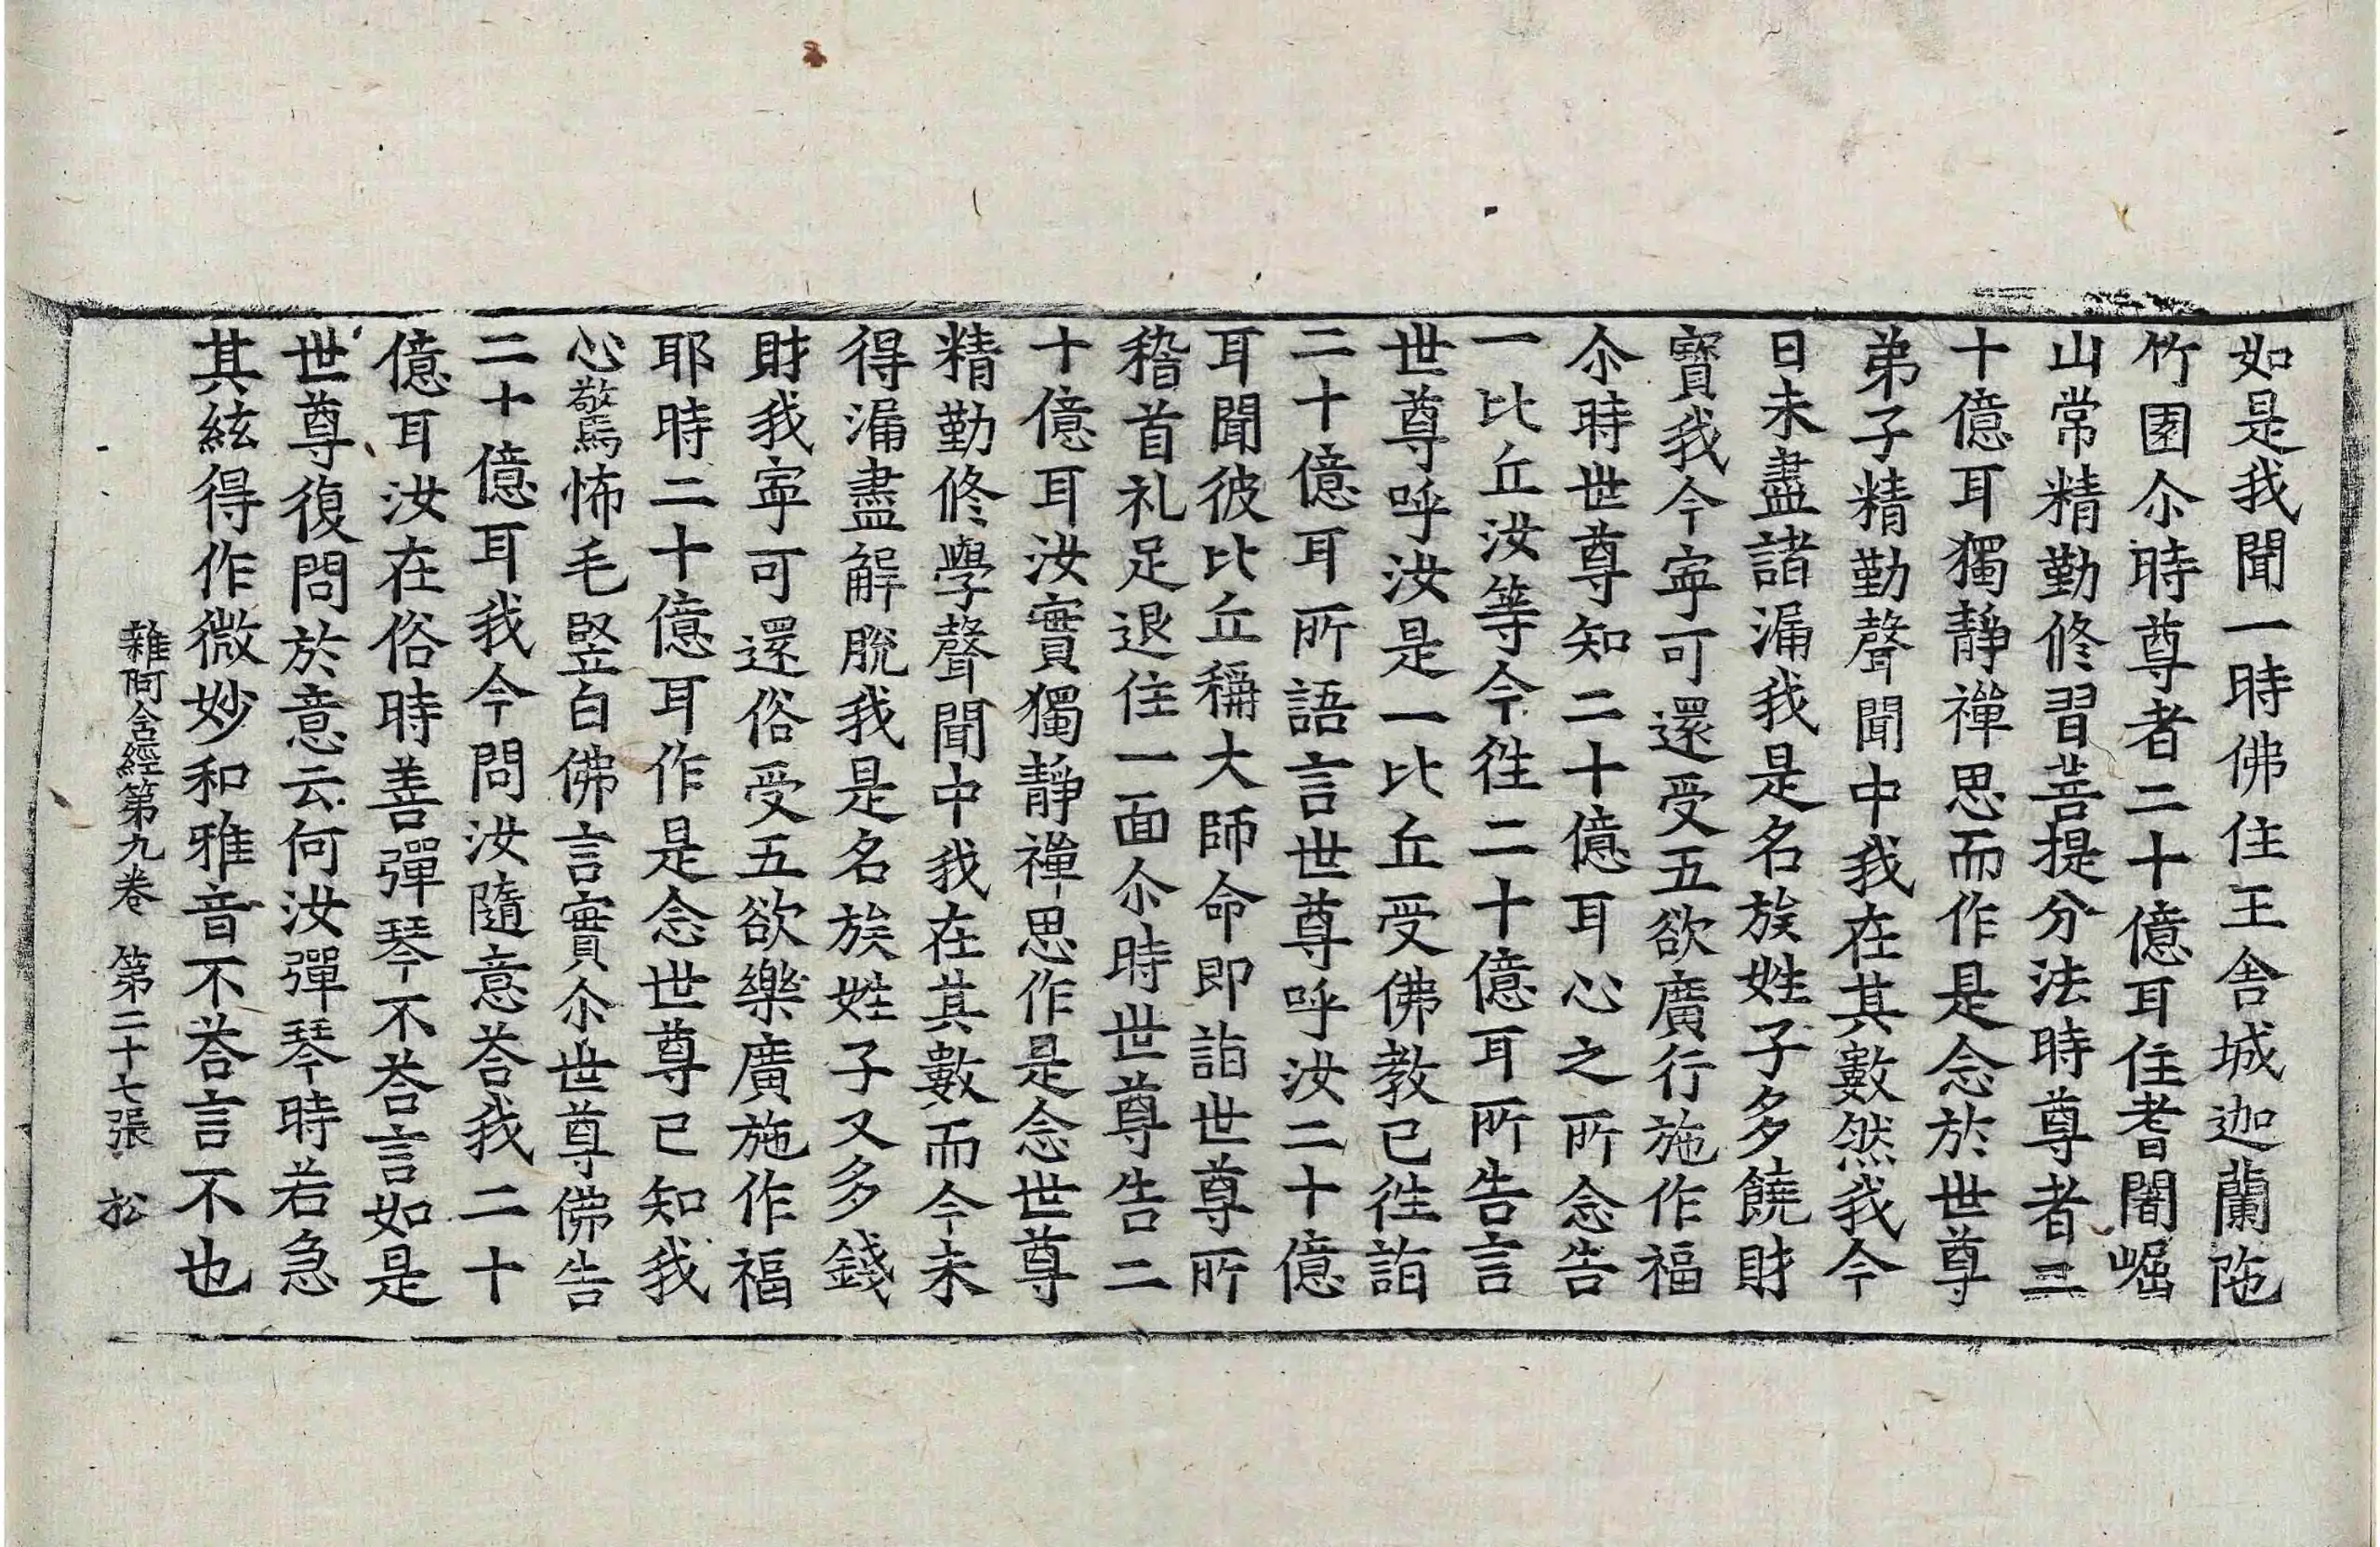 如是我聞一時佛住王舍城迦蘭陁
竹園尒時尊者二十億耳住耆闍崛
山常精勤修習菩提分法時尊者二
十億耳獨靜禪思而作是念於世尊
弟子精勤聲聞中我在其數然我今
日未盡諸漏我是名族姓子多饒財
寶我今寜可還受五欲廣行施作福
尒時世尊知二十億耳心之所念告
一比丘汝等今徃二十億耳所告言
世尊呼汝是一比丘受佛教已徃詣
二十億耳所語言世尊呼汝二十億
耳聞彼比丘稱大師命即詣世尊所
稽首礼足退住一面尒時世尊告二
十億耳汝實獨靜禪思作是念世尊
精勤修學聲聞中我在其數而今未
得漏盡解脫我是名族姓子又多錢
財我寜可還俗受五欲樂廣施作福
耶時二十億耳作是念世尊已知我
心驚怖毛竪白佛言實尒世尊佛告
二十億耳我今問汝隨意荅我二十
億耳汝在俗時善彈琴不荅言如是
世尊復問於意云何汝彈琴時若急
其絃得作微妙和雅音不荅言不也
雜阿含經第九卷　第二十七張　松